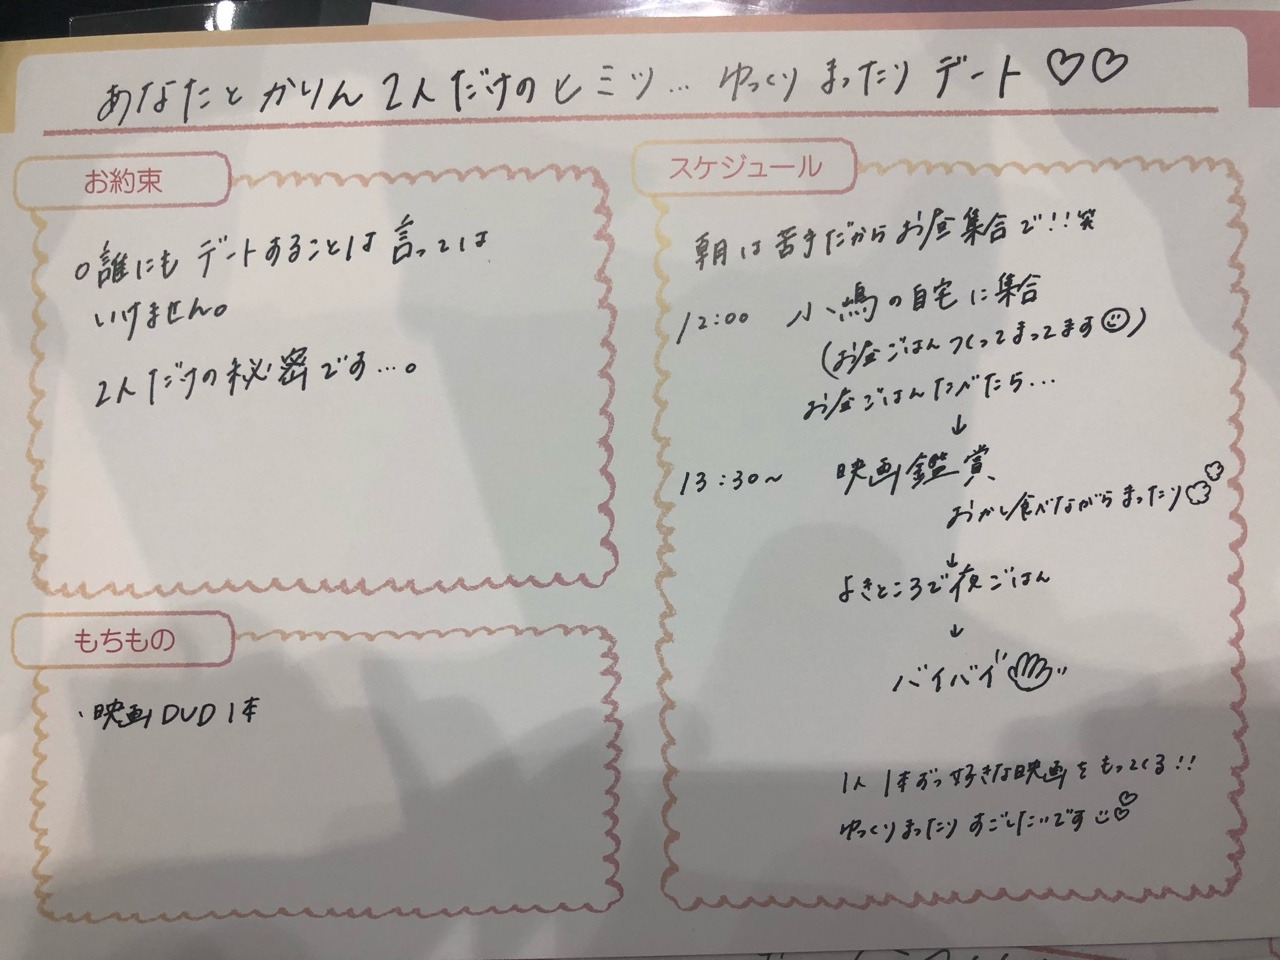 あなたとかりん2人だけのヒミツ…ゆっくりまったりデート♡♡
お約束
○誰にもデートすることは言っては
いけません。
2人だけの秘密です…。
もちもの
・映画DVD1本
スケジュール
朝は苦手だからお昼集合で!!笑
12:00 小嶋の自宅に集合
(お昼ごはんつくってまってます☺)
お昼ごはんたべたら…
↓
13:30~ 映画鑑賞
おかし食べながらまったり
↓
よきところで夜ごはん
↓
バイバイ
1人1本ずつ好きな映画をもってくる!!
ゆっくりまったりすごしたいです♡